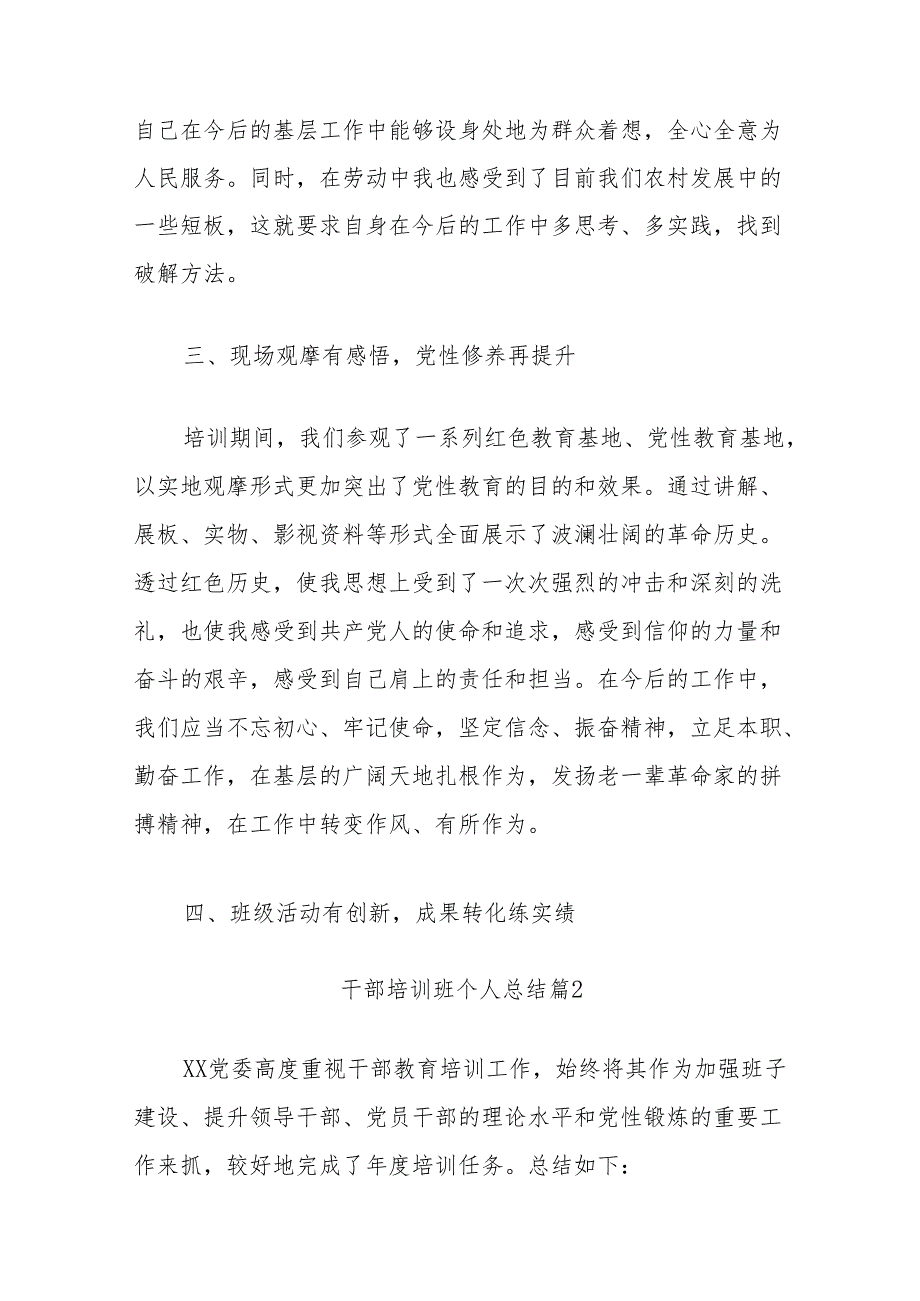 自己在今后的基层工作中能够设身处地为群众着想，全心全意为
人民服务。同时，在劳动中我也感受到了目前我们农村发展中的
一些短板，这就要求自身在今后的工作中多思考、多实践，找到
破解方法。
三、现场观摩有感悟，党性修养再提升
培训期间，我们参观了一系列红色教育基地、党性教育基地，
以实地观摩形式更加突出了党性教育的目的和效果。通过讲解、
展板、实物、影视资料等形式全面展示了波澜壮阔的革命历史。
透过红色历史，使我思想上受到了一次次强烈的冲击和深刻的洗
礼，也使我感受到共产党人的使命和追求，感受到信仰的力量和
奋斗的艰辛，感受到自己肩上的责任和担当。在今后的工作中，
我们应当不忘初心、牢记使命，坚定信念、振奋精神，立足本职、
勤奋工作，在基层的广阔天地扎根作为，发扬老一辈革命家的拼
搏精神，在工作中转变作风、有所作为。
四、班级活动有创新，成果转化练实绩
干部培训班个人总结篇2
XX党委高度重视干部教育培训工作，始终将其作为加强班子
建设、提升领导干部、党员干部的理论水平和党性锻炼的重要工
作来抓，较好地完成了年度培训任务。总结如下：